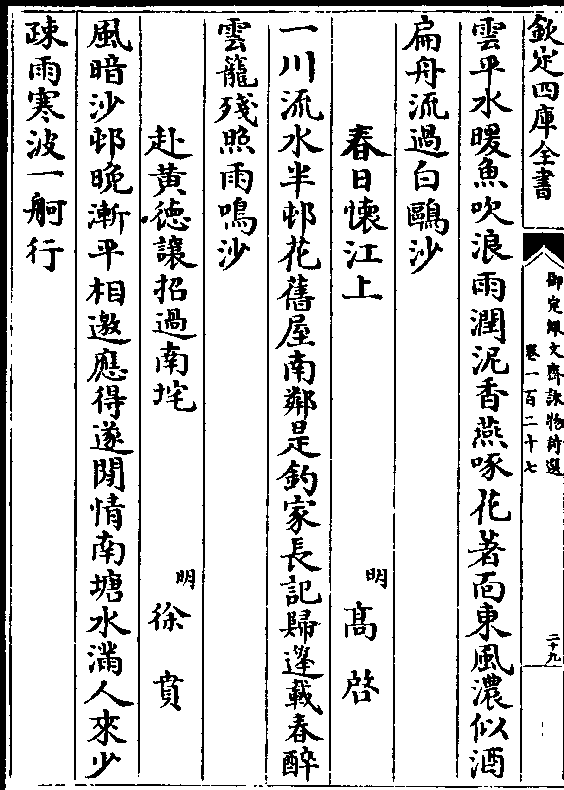 欽定四庫全書
御定佩文齋詠物詩選
卷一百二十七
二十九
雲平水暖魚吹浪雨潤泥香燕啄花著面東風濃似酒
扁舟流過白鷗沙
春日懷江上
明
高啓
一川流水半邨花舊屋南鄰是釣家長記歸篷載春醉
雲籠殘照雨鳴沙
赴黃德讓招過南垞
明
徐賁
風暗沙邨晚漸平相邀應得遂閒情南塘水滿人來少
疎雨寒波一舸行